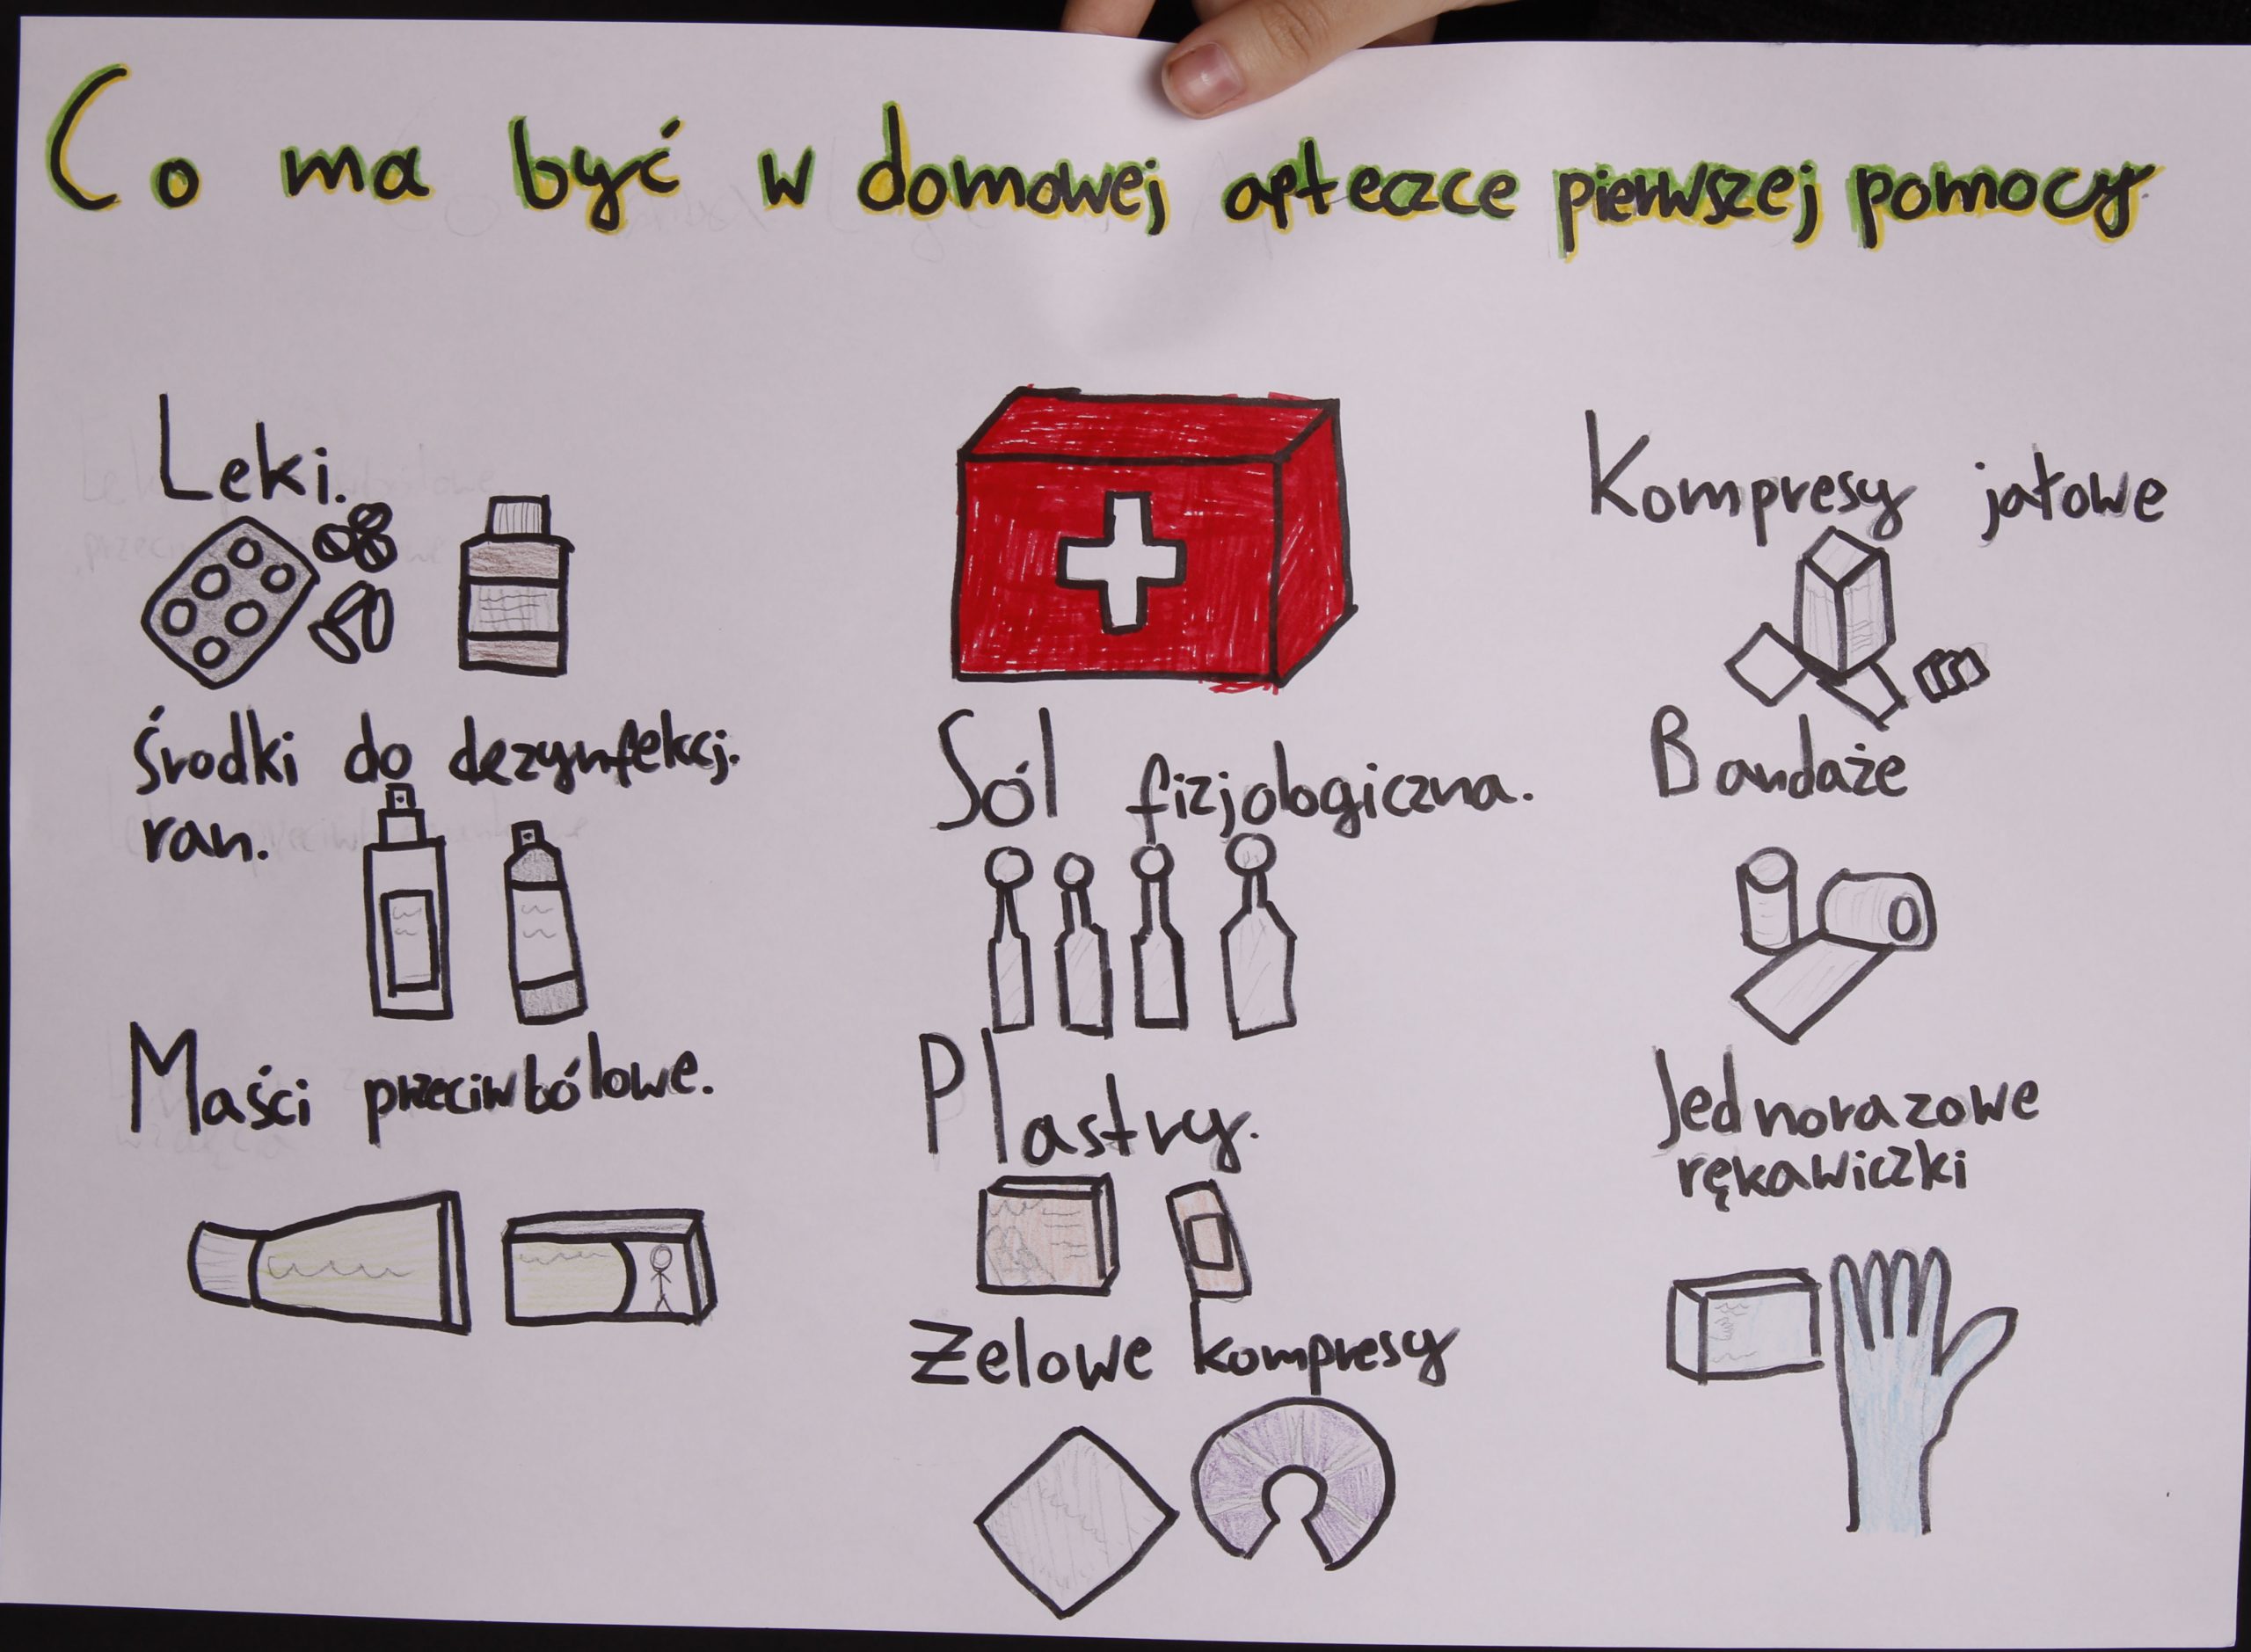 Co ma być w domowej apteczce pierwszej pomocy.
Leki.
Środki do dezynfekcj.
ran.
Maści przeciwbólowe.
Sól fizjologiczna.
Plastry.
Żelowe kompresy
Kompresy jałowe
Bandaże
Jednorazowe
rękawiczki